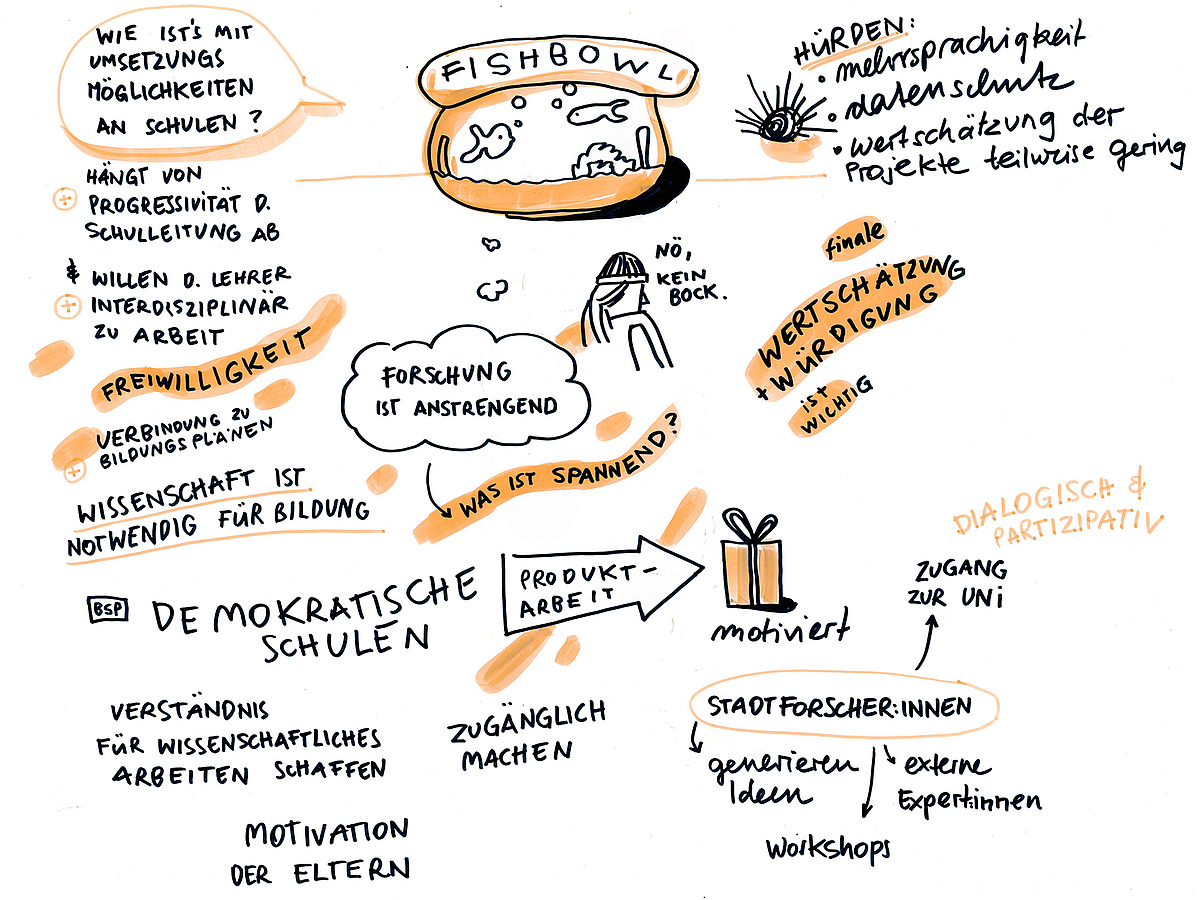 WIE IST'S MIT
UMSETZUNGS
MÖGLICHKEITEN
AN SCHULEN?
HÄNGT VON
PROGRESSIVITÄT D.
SCHULLEITUNG AB
& WILLEN D. LEHRER
INTERDISZIPLINÄR
ZU ARBEIT
FREIWILLIGKEIT
VERBINDUNG ZU
BILDUNGSPLÄNEN
WISSENSCHAFT IST
NOTWENDIG FÜR BILDUNG
FISHBOWL
HÜRDEN:
• mehrsprachigkeit
• datenschutz
• wertschätzung der
Projekte teilweise gering
NÖ,
KEIN
BOCK.
FORSCHUNG
IST ANSTRENGEND
WAS IST SPANNEND?
finale
WERTSCHÄTZUNG
+ WÜRDIGUNG
ist
WICHTIG
BSP
DEMOKRATISCHE
SCHULEN
PRODUKT-
ARBEIT
motiviert
DIALOGISCH &
PARTIZIPATIV
ZUGANG
ZUR UNI
STADTFORSCHER:INNEN
generieren
Ideen
externe
Expert:innen
Workshops
VERSTÄNDNIS
FÜR WISSENSCHAFTLICHES
ARBEITEN SCHAFFEN
ZUGÄNGLICH
MACHEN
MOTIVATION
DER ELTERN